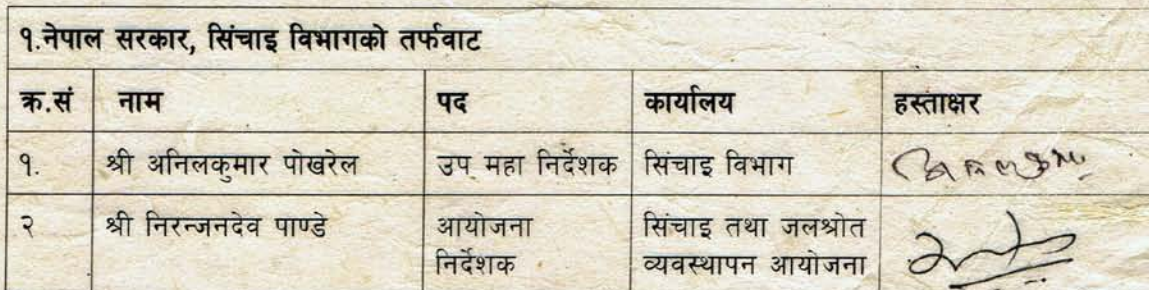 १.नेपाल सरकार, सिंचाइ विभागको तर्फवाट
क्र.सं नाम पद कार्यालय हस्ताक्षर
१. श्री अनिलकुमार पोखरेल उप महा निर्देशक सिंचाइ विभाग
२ श्री निरन्जनदेव पाण्डे आयोजना निर्देशक सिंचाइ तथा जलश्रोत व्यवस्थापन आयोजना